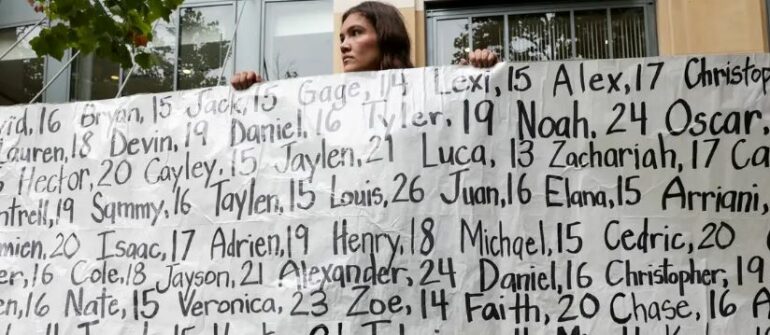 16 Bryan, 15 Jack, 15 Gage, 14 Lexi, 15 Alex, 17
Lauren, 18 Devin, 19 Daniel, 16 Tyler, 19 Noah, 24 Oscar,
Hector, 20 Cayley, 15 Jaylen, 21 Luca, 13 Zachariah, 17
19 Sammy, 16 Taylen, 15 Louis, 26 Juan, 16 Elana, 15 Arriani,
20 Isaac, 17 Adrien, 19 Henry, 18 Michael, 15 Cedric, 20
16 Cole, 18 Jayson, 21 Alexander, 24 Daniel, 16 Christopher, 19
16 Nate, 15 Veronica, 23 Zoe, 14 Faith, 20 Chase, 16